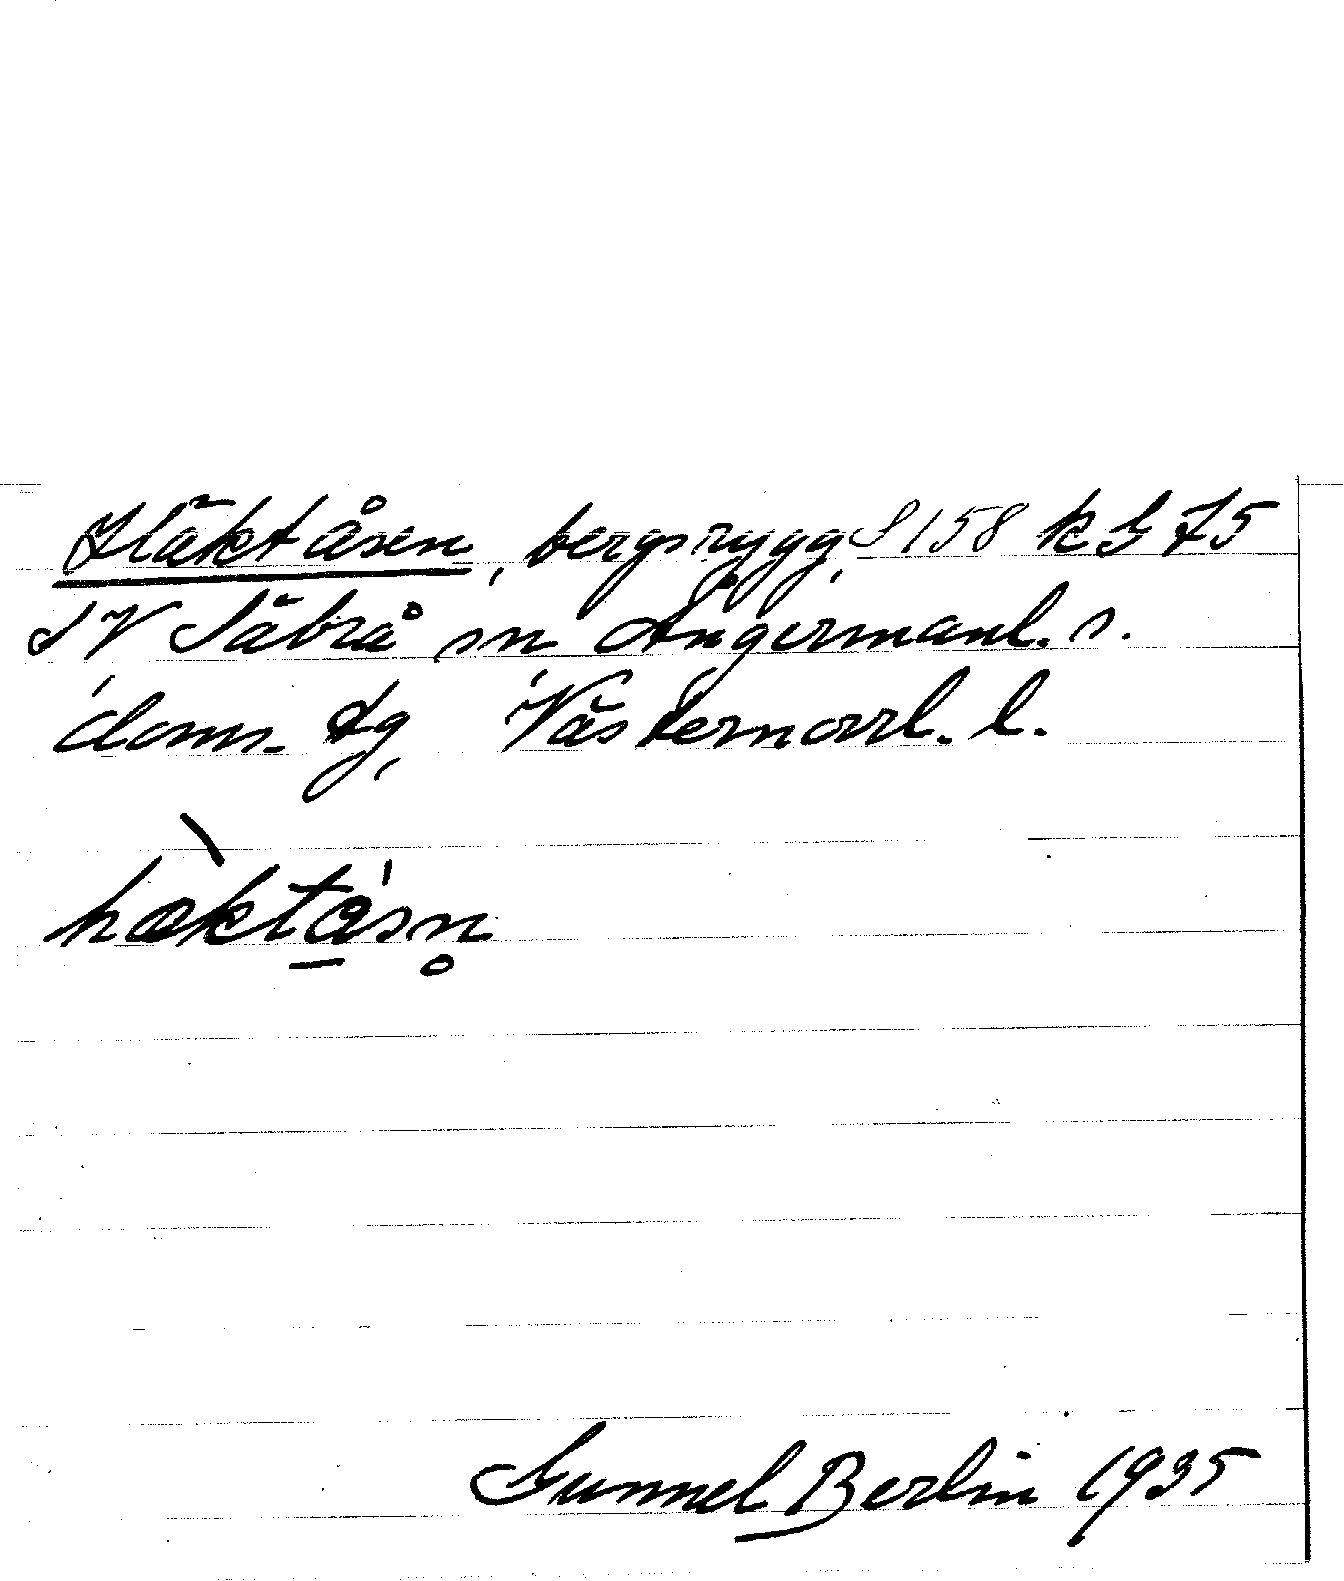 Häktåsen, bergsrygg, S 158 k G 75
SV Säbrå sn Ångermanl. s.
doms. tg, Västernorrl. l.
hæ̀ktåsn̥
Gunnel Berlin 1935